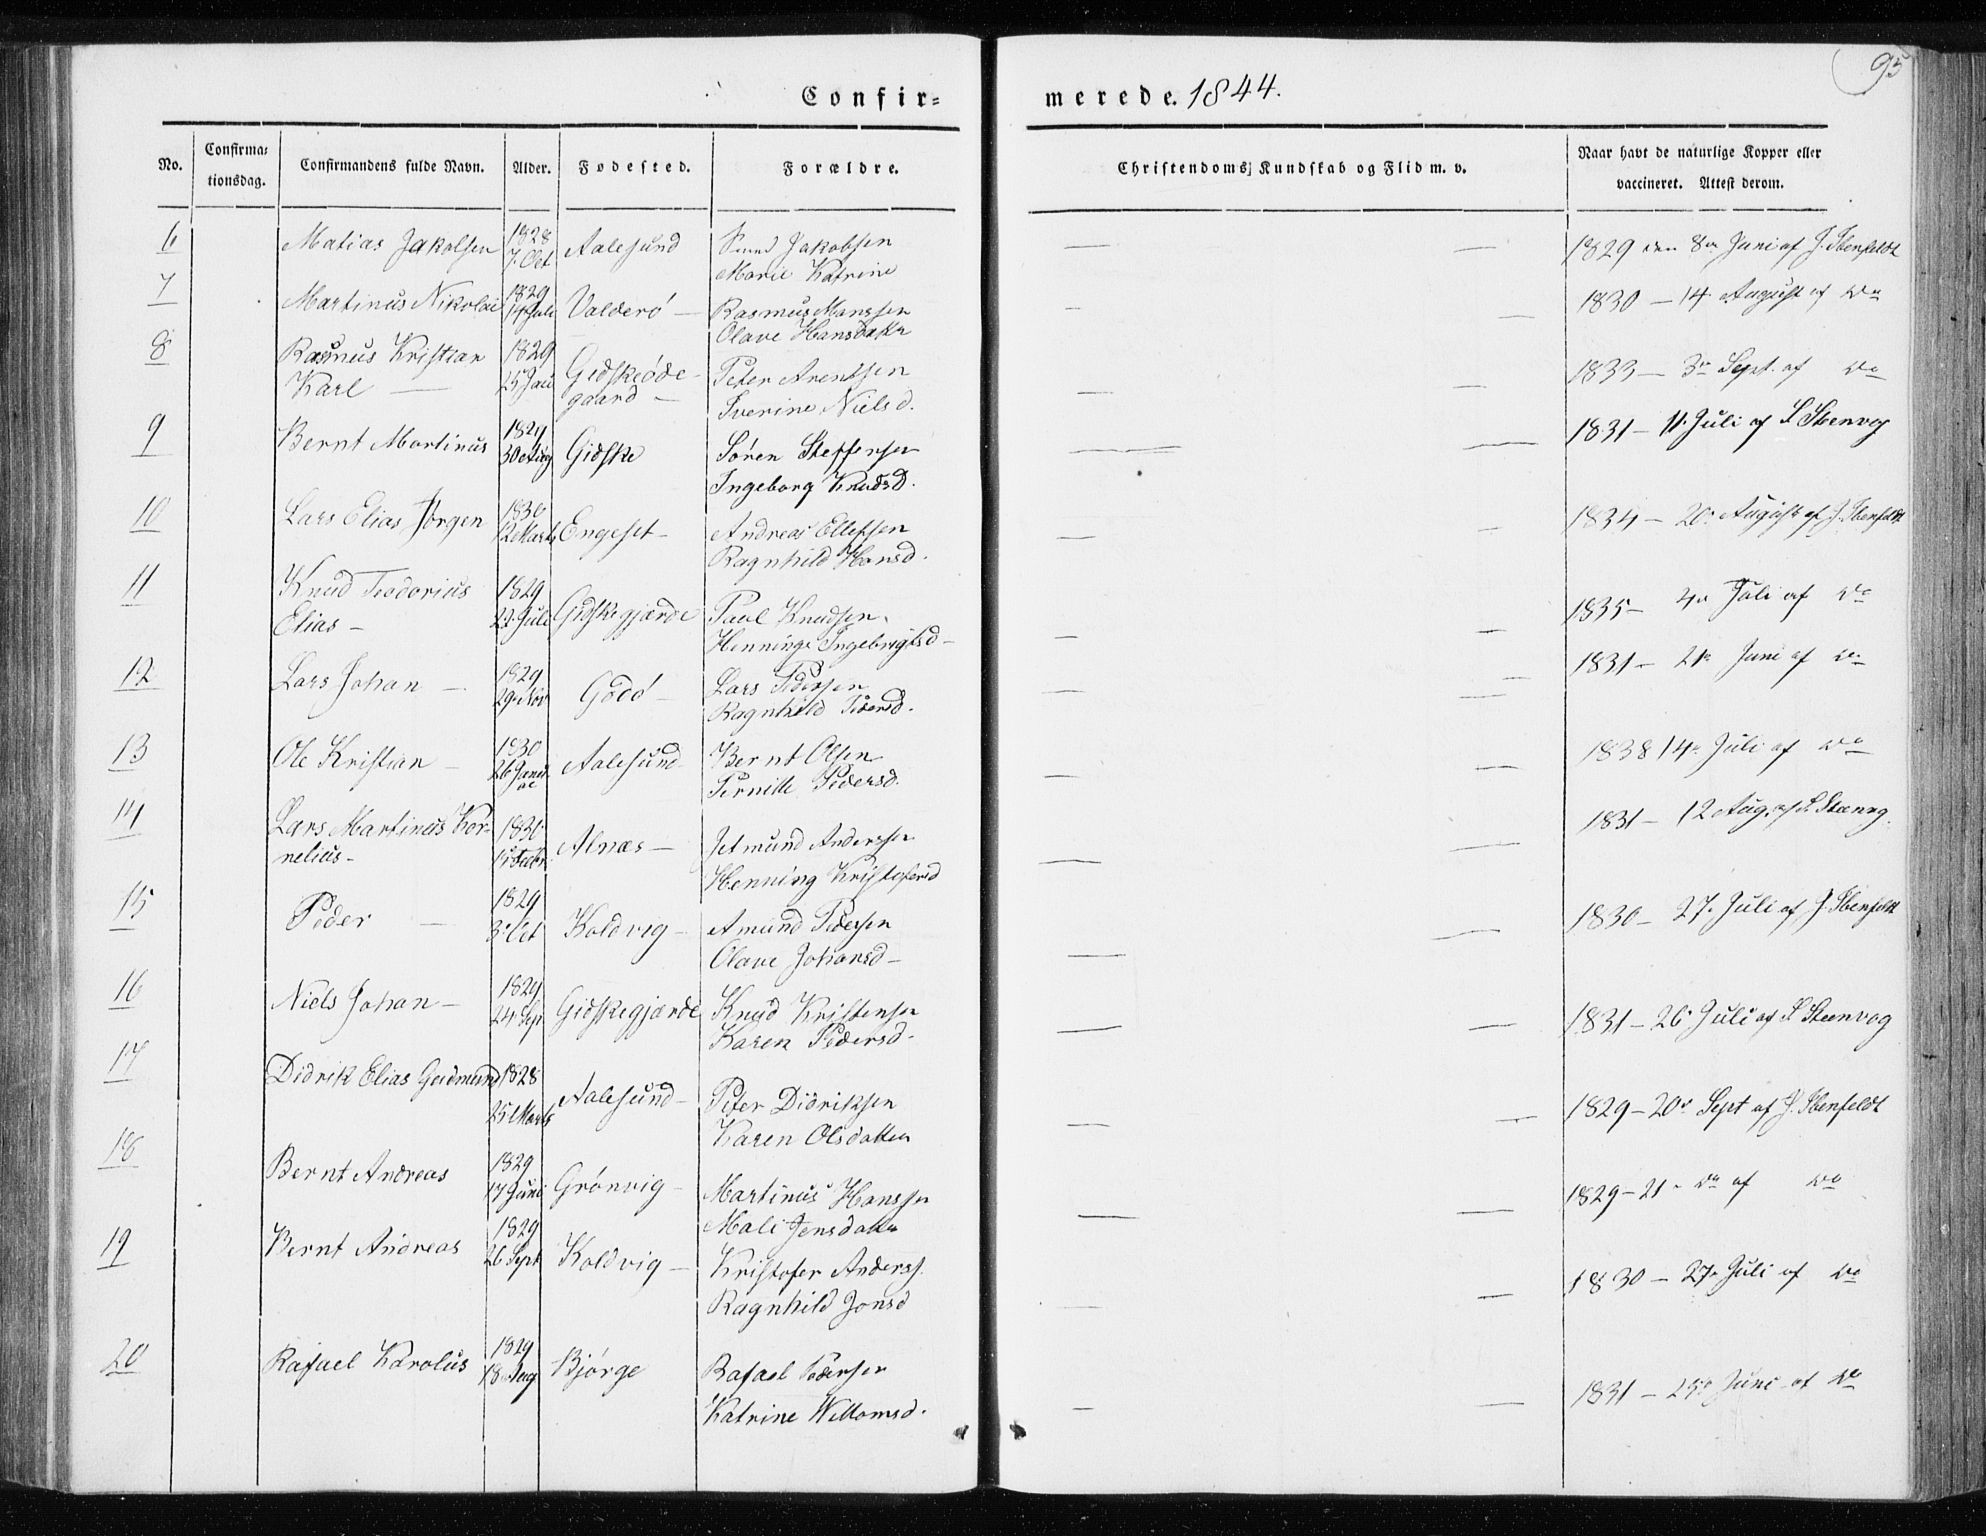 95
Confir=
merede. 1844.
No.
Confirma=
tionsdag.
Confirmandens fulde Navn.
Alder.
Fødested.
Forældre.
Christendoms Kundskab og Flid m. v.
Naar havt de naturlige Kopper eller
vaccineret. Attest derom.
6 Matias Jakobsen 1828 7. Oct Aalesund Jakobsen
Marie Katrine
1829 den 8de Juni af J. Ibenfeldt
7 Martinus Nikolai 1829 14 Juli Valderö — Rasmus Manssen
Olave Hansdatter
1830 — 14. August af do
8 Rasmus Kristian 1829
Karl — 25 Jan Gidskeöde-
gaard —
Peter Arentsen
Iverine Nielsd.
1833 — 3de Sept. af do
9 Bernt Martinus 1829 30 Aug Gidske Søren Steffensen
Ingeborg Knudsd.
1831 — 11. Juli af S Steenvog
10 Lars Elias Jørgen 1830 12 Marts Engeset — Andreas Ellefsen
Ragnhild Hansd.
1834 — 20. August af J. Ibenfeldt
11 Knud Teodorius 1829
Elias — 22. Juli Gidskegjærde Paul Knudsen
Henninge Ingebrigtsd —
1835 — 4de Juli af do
12 Lars Johan — 1829 29. Nov Godö — Lars Pedersen
Ragnhild Pedersd.
1831 — 21de Juni af do
13 Ole Kristian — 1830 26 Aalesund Bernt Olsen
Pernille Pedersd.
1838 14de Juli af do
14 Lars Martinus Kor-
nelius — 1830 Febr. Alnæs — Jetmund Anderssen
Henning Kristofersd
1831 — 12 Aug. af S Steenvg.
15 Peder — 1829 3. Oct Koldvig — Amund Pedersen
Olave Johansd —
1830 — 27. Juli af J. Ibenfeldt
16 Niels Johan — 1829 24. Sep Gidskegjærde Knud Kristensen
Karen Pedersd.
1831 — 26. Juli af S Steenvog
17 Didrik Elias Gudmund 1828 25 Marts Aalesund — Peter Didriksen
Karen Olsdatter
1829 — 20de Sept af J. Ibenfeldt
18 Bernt Andreas 1829 17 Juni Grönvig — Martinus Hanssen
Mali Jensdatter
1829 — 21 do af do
19 Bernt Andreas 1829 26 Sept Koldvig — Kristofer Anderss.
Ragnhild Jonsd
1830 — 27de Juli af do
20 Rafael Karolus 1829 18 Aug Bjørge Rafael Pedersen
Katrine Willomsd.
1831 — 25de Juni af do